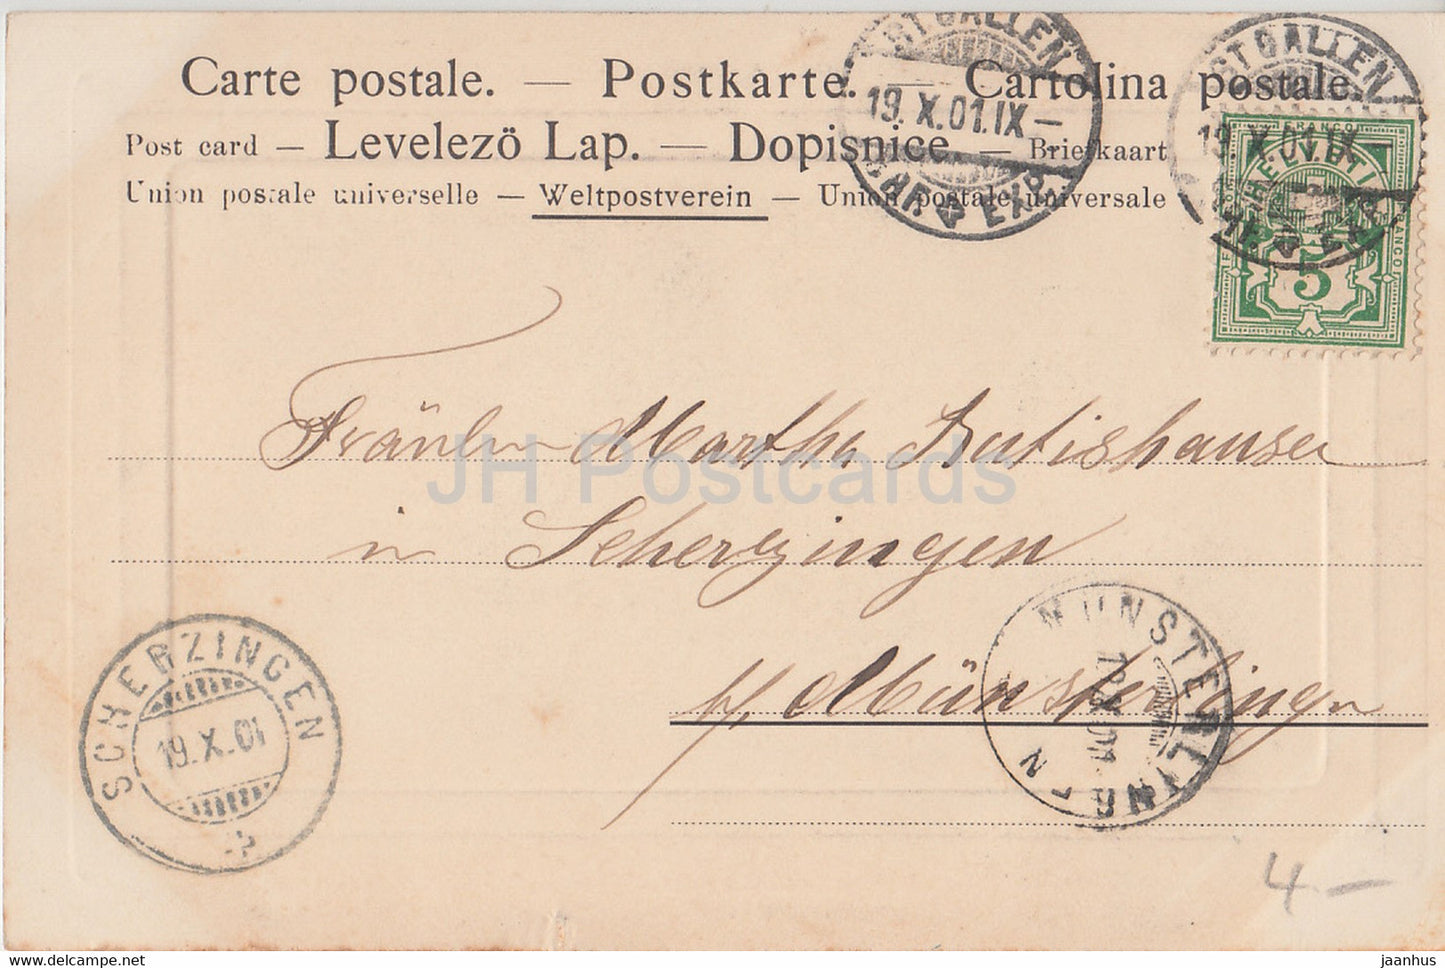 Carte postale. — Postkarte. — Cartolina postale.
Post card — Levelezö Lap. — Dopisnice. — Briefkaart
Union postale universelle — Weltpostverein — Union postale universale
ST GALLEN
19. X. 01. IX –
BRF. EXP.
ST GALLEN
19. X. 01. IX –
BRF. EXP.
FRANCO
HELVETIA
FRANCO
5
Fräulein Martha Rutishauser
in Scherzingen
b/ Münsterlingen
SCHERZINGEN
19. X. 01
MÜNSTERLINGEN
19. X. 01
4.—
JH Postcards
jaanhus